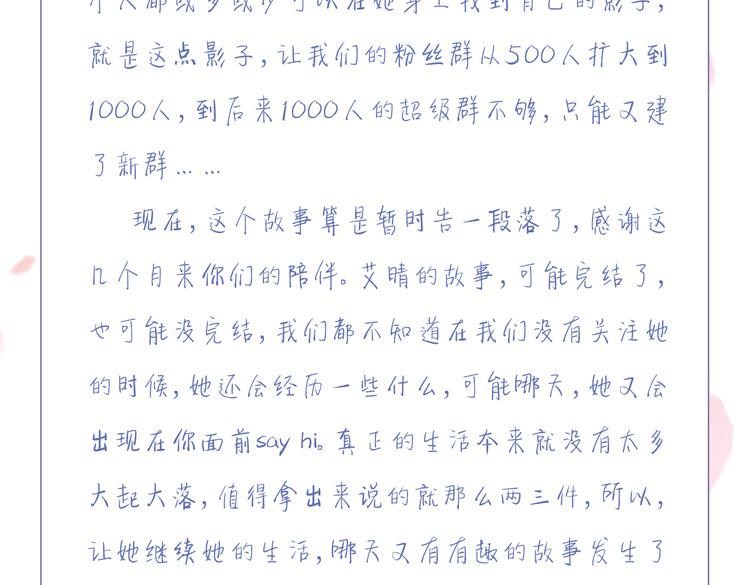 个人都或多或少可以在她身上找到自己的影子，
就是这点影子，让我们的粉丝群从500人扩大到
1000人，到后来1000人的超级群不够，只能又建
了新群……
现在，这个故事算是暂时告一段落了，感谢这
几个月来你们的陪伴。艾晴的故事，可能完结了，
也可能没完结，我们都不知道在我们没有关注她
的时候，她还会经历一些什么，可能哪天，她又会
出现在你面前say hi。真正的生活本来就没有太多
大起大落，值得拿出来说的就那么两三件，所以，
让她继续她的生活，哪天又有有趣的故事发生了